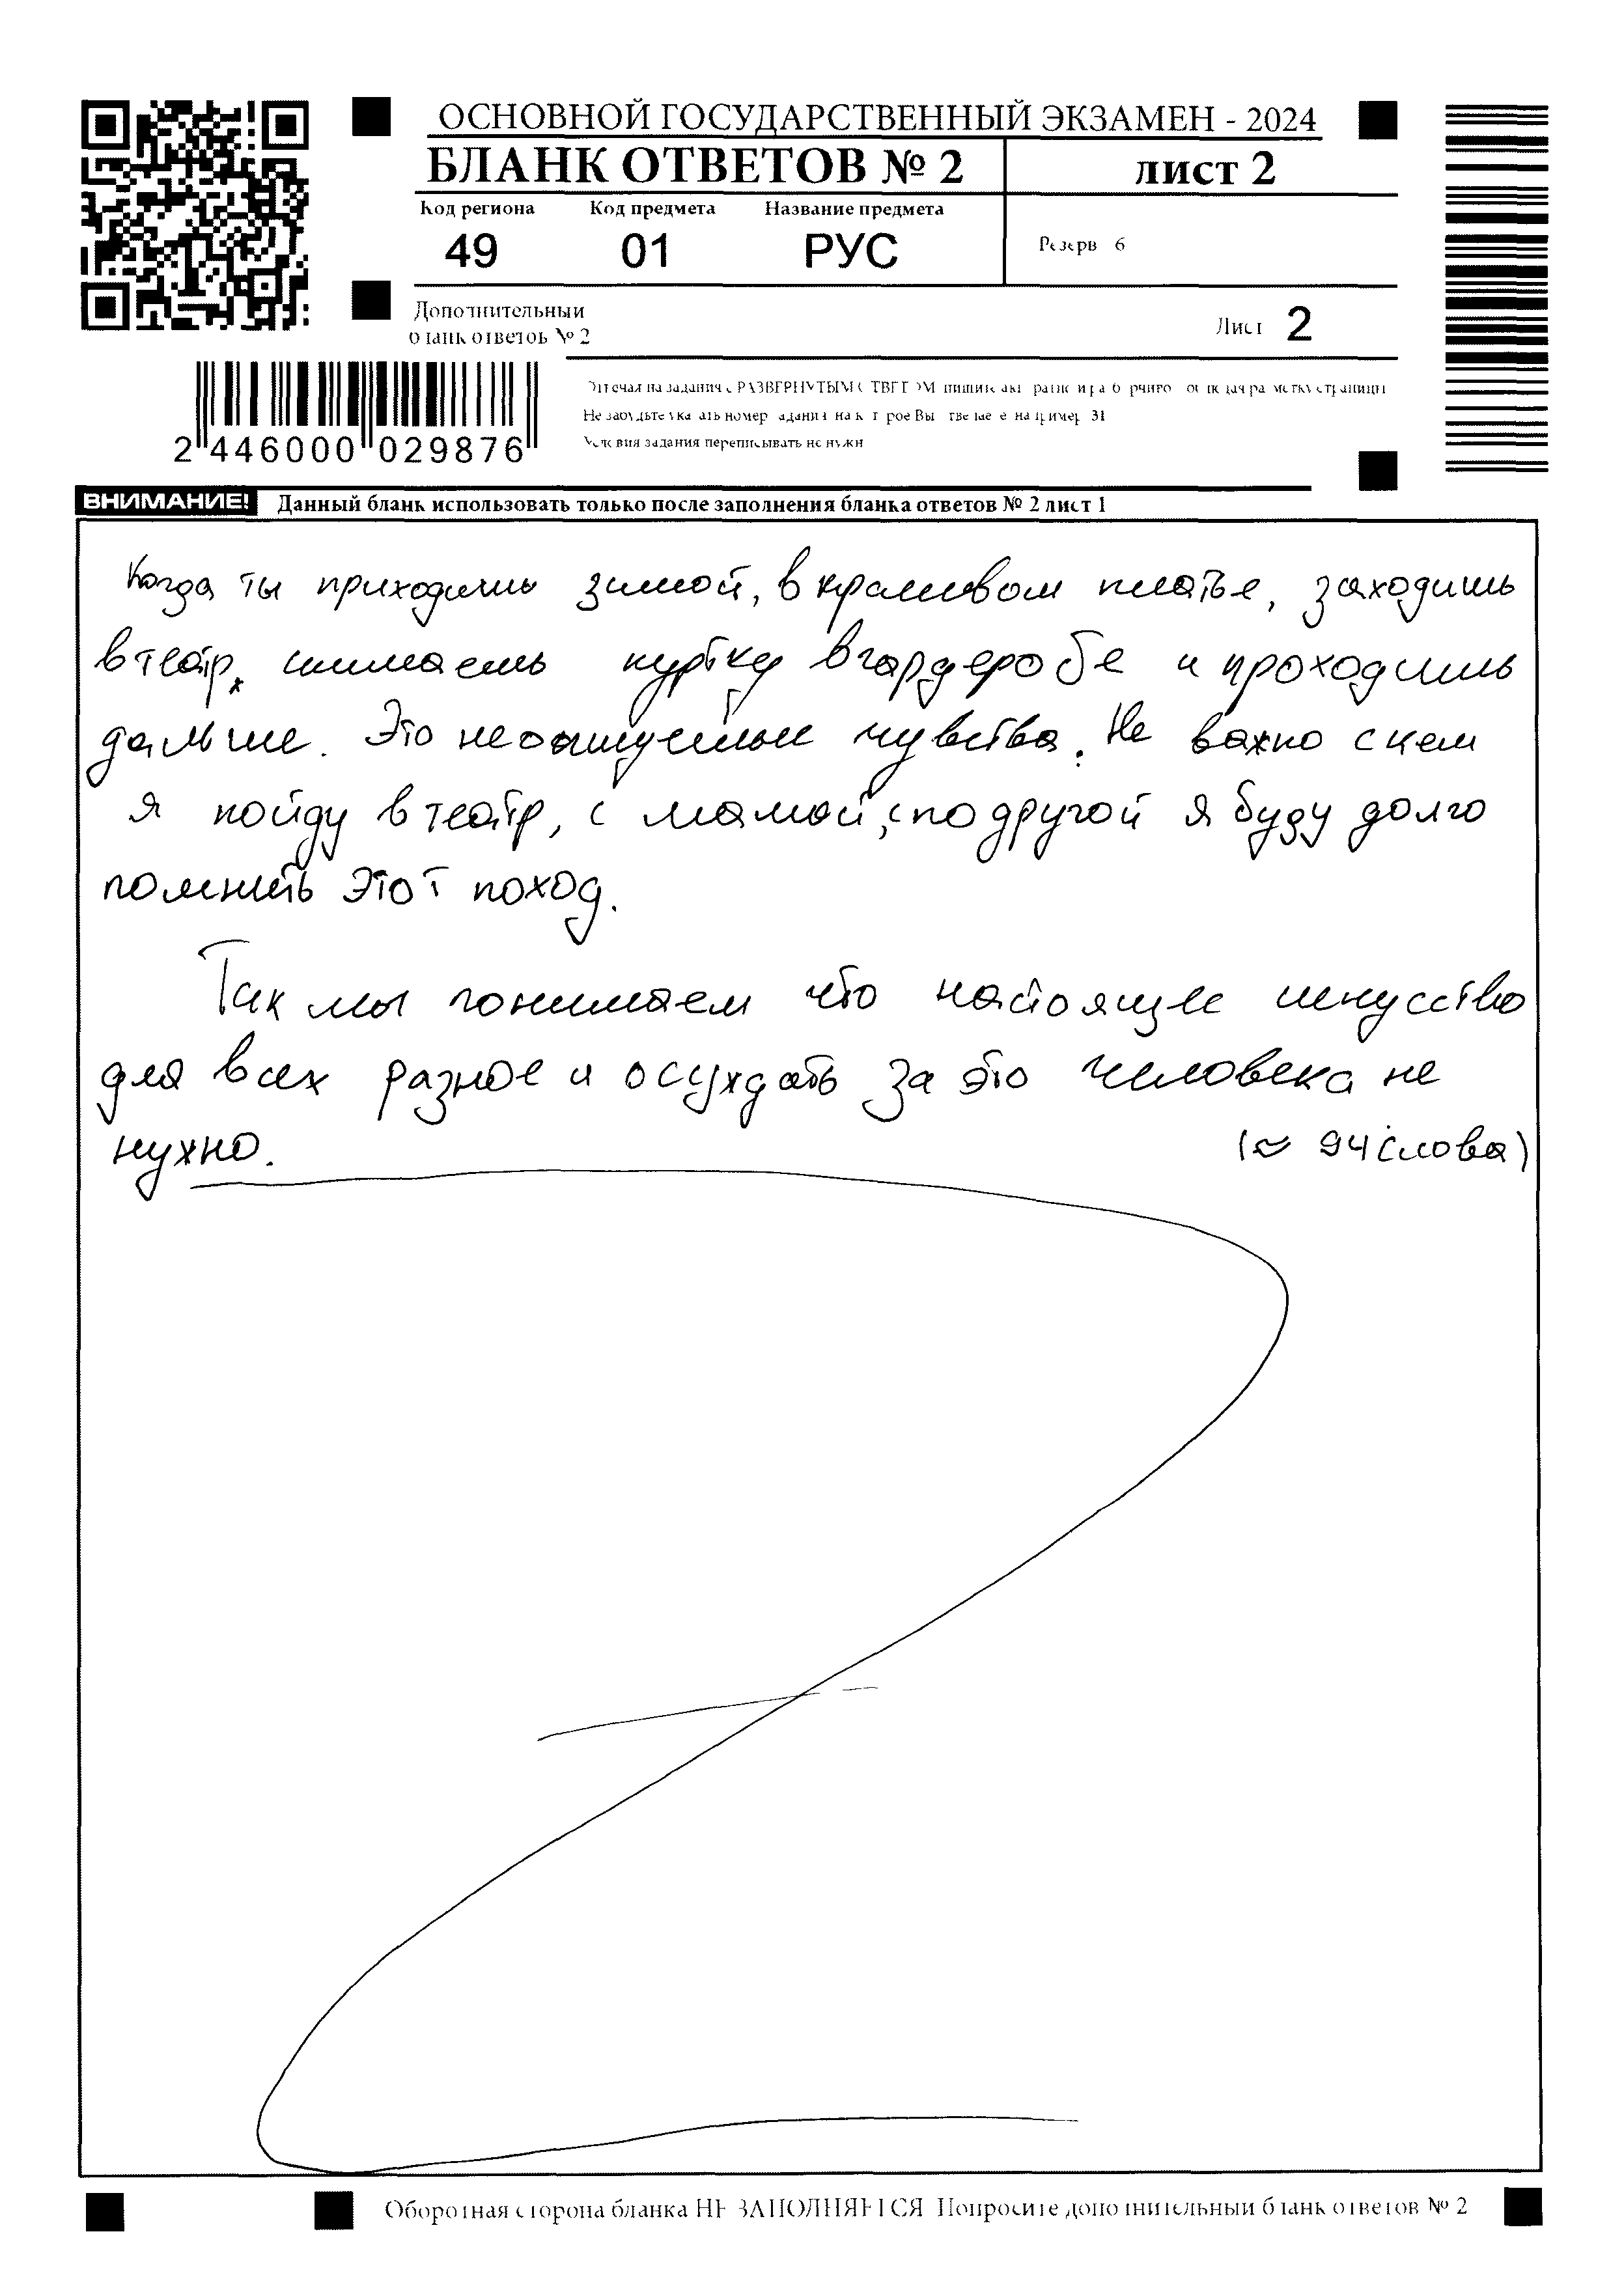 ОСНОВНОЙ ГОСУДАРСТВЕННЫЙ ЭКЗАМЕН - 2024
БЛАНК ОТВЕТОВ № 2
лист 2
Код региона Код предмета Название предмета
49 01 РУС
Резерв 6
Дополнительный
бланк ответов № 2
Лист 2
2 446000 029876
Условия задания переписывать не нужно
ВНИМАНИЕ! Данный бланк использовать только после заполнения бланка ответов № 2 лист 1
Когда ты приходишь зимой, в красивом платье, заходишь
в театр, снимаешь куртку в гардеробе и проходишь
дальше. Это неощущемые чувства. Не важно с кем
я пойду в театр, с мамой, с подругой я буду долго
помнить этот поход.
Так мы понимаем что настоящее искусство
для всех разное и осуждать за это человека не
нужно. (≈ 94 слова)
Оборотная сторона бланка НЕ ЗАПОЛНЯЕТСЯ Попросите дополнительный бланк ответов № 2